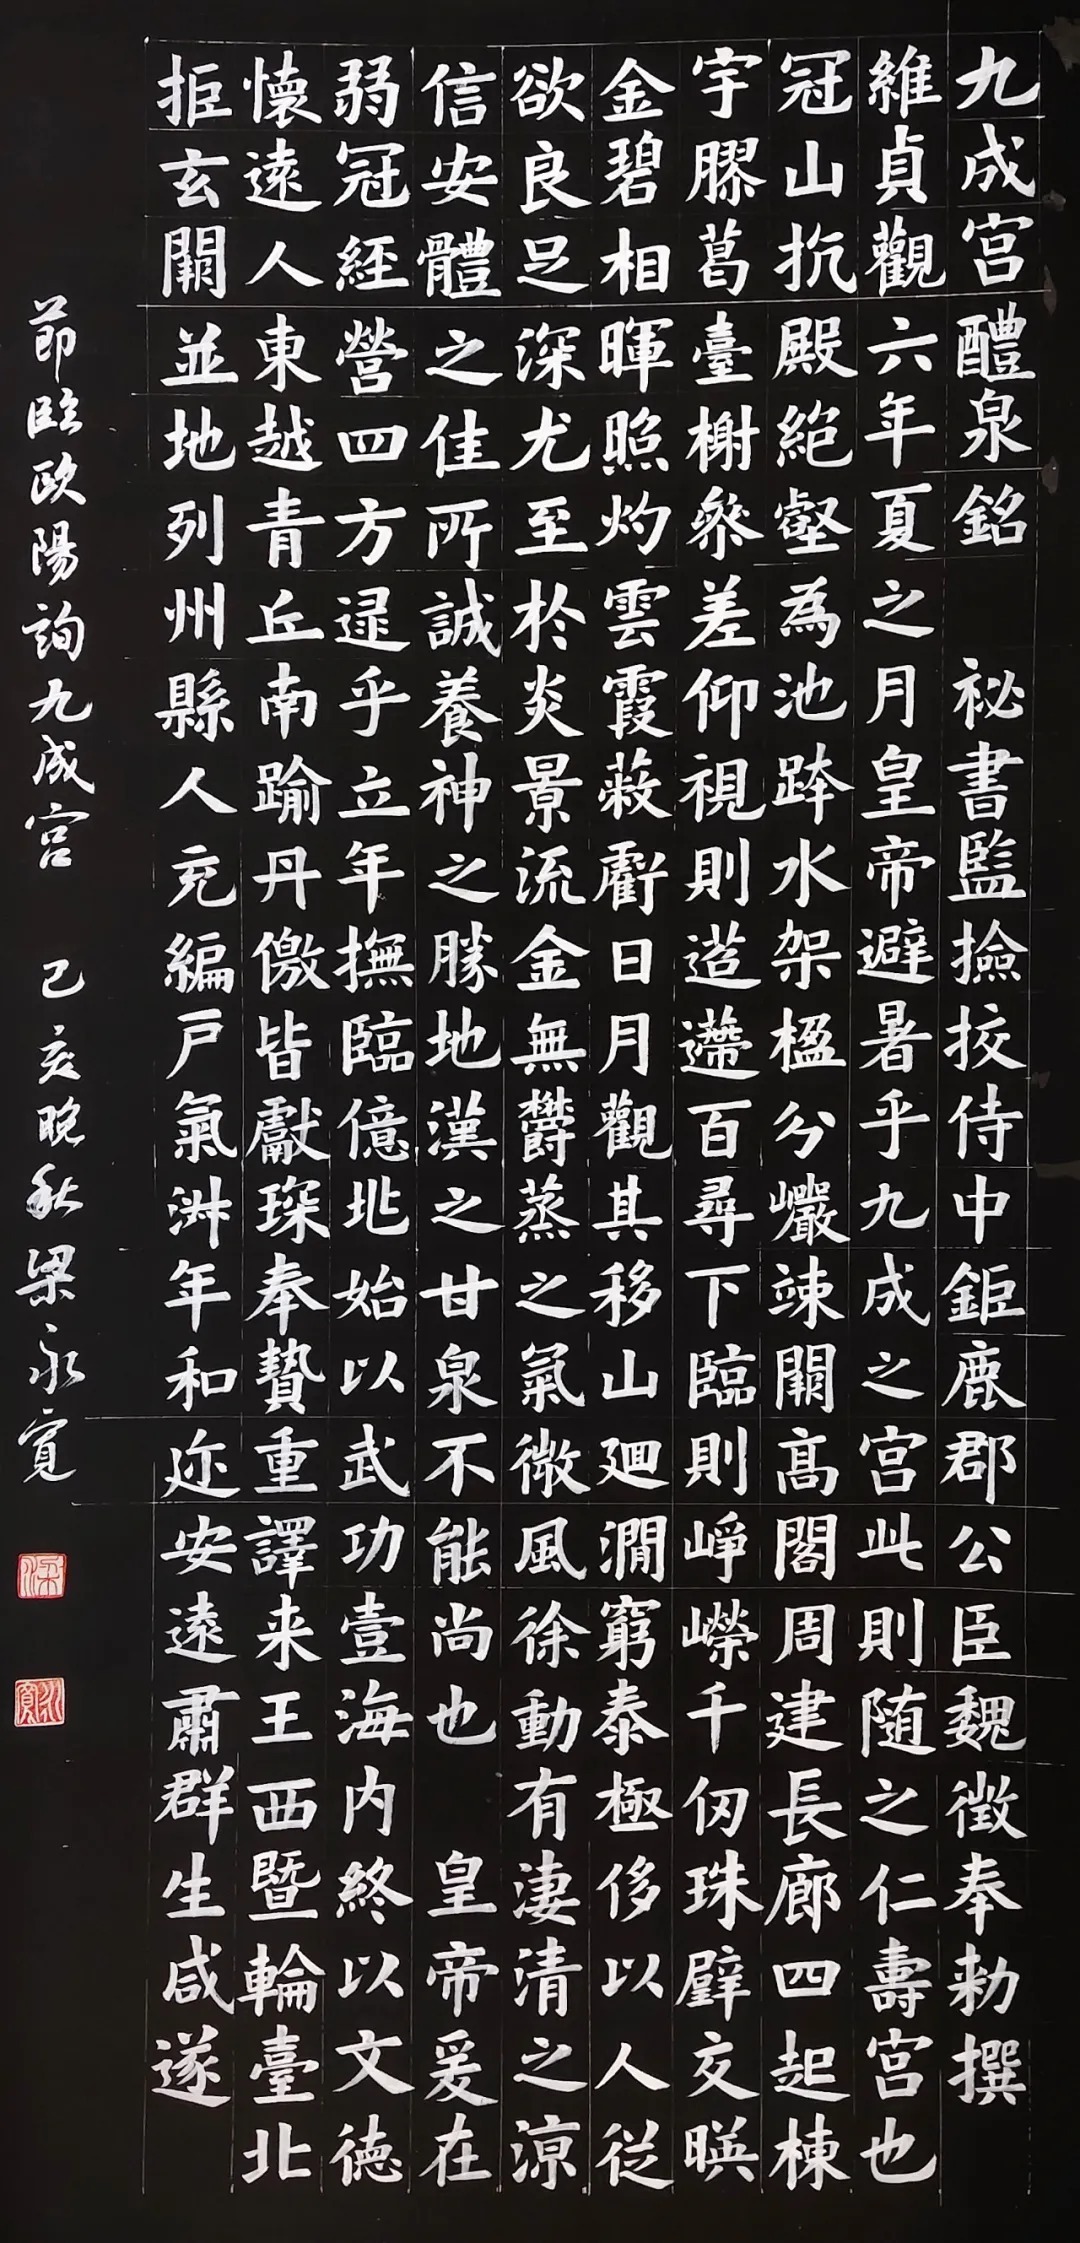 九成宮醴泉銘 祕書監撿挍侍中鉅鹿郡公臣魏徵奉勅撰
維貞觀六年夏之月皇帝避暑乎九成之宮此則随之仁壽宮也
冠山抗殿絕壑為池跨水架楹分巖竦闕高閣周建長廊四起棟
宇膠葛臺榭參差仰視則迢遰百尋下臨則崢嶸千仞珠璧交暎
金碧相暉照灼雲霞蔽虧日月觀其移山迴澗窮泰極侈以人從
欲良足深尤至於炎景流金無鬱蒸之氣微風徐動有淒清之涼
信安體之佳所誠養神之勝地漢之甘泉不能尚也 皇帝爰在
弱冠經營四方逯乎立年撫臨億兆始以武功壹海內終以文德
懷遠人東越青丘南踰丹儌皆獻琛奉贄重譯来王西暨輪臺北
拒玄闕並地列州縣人充編戶氣淑年和迩安遠肅群生咸遂
節臨歐陽詢九成宮 己亥晚秋梁永寬